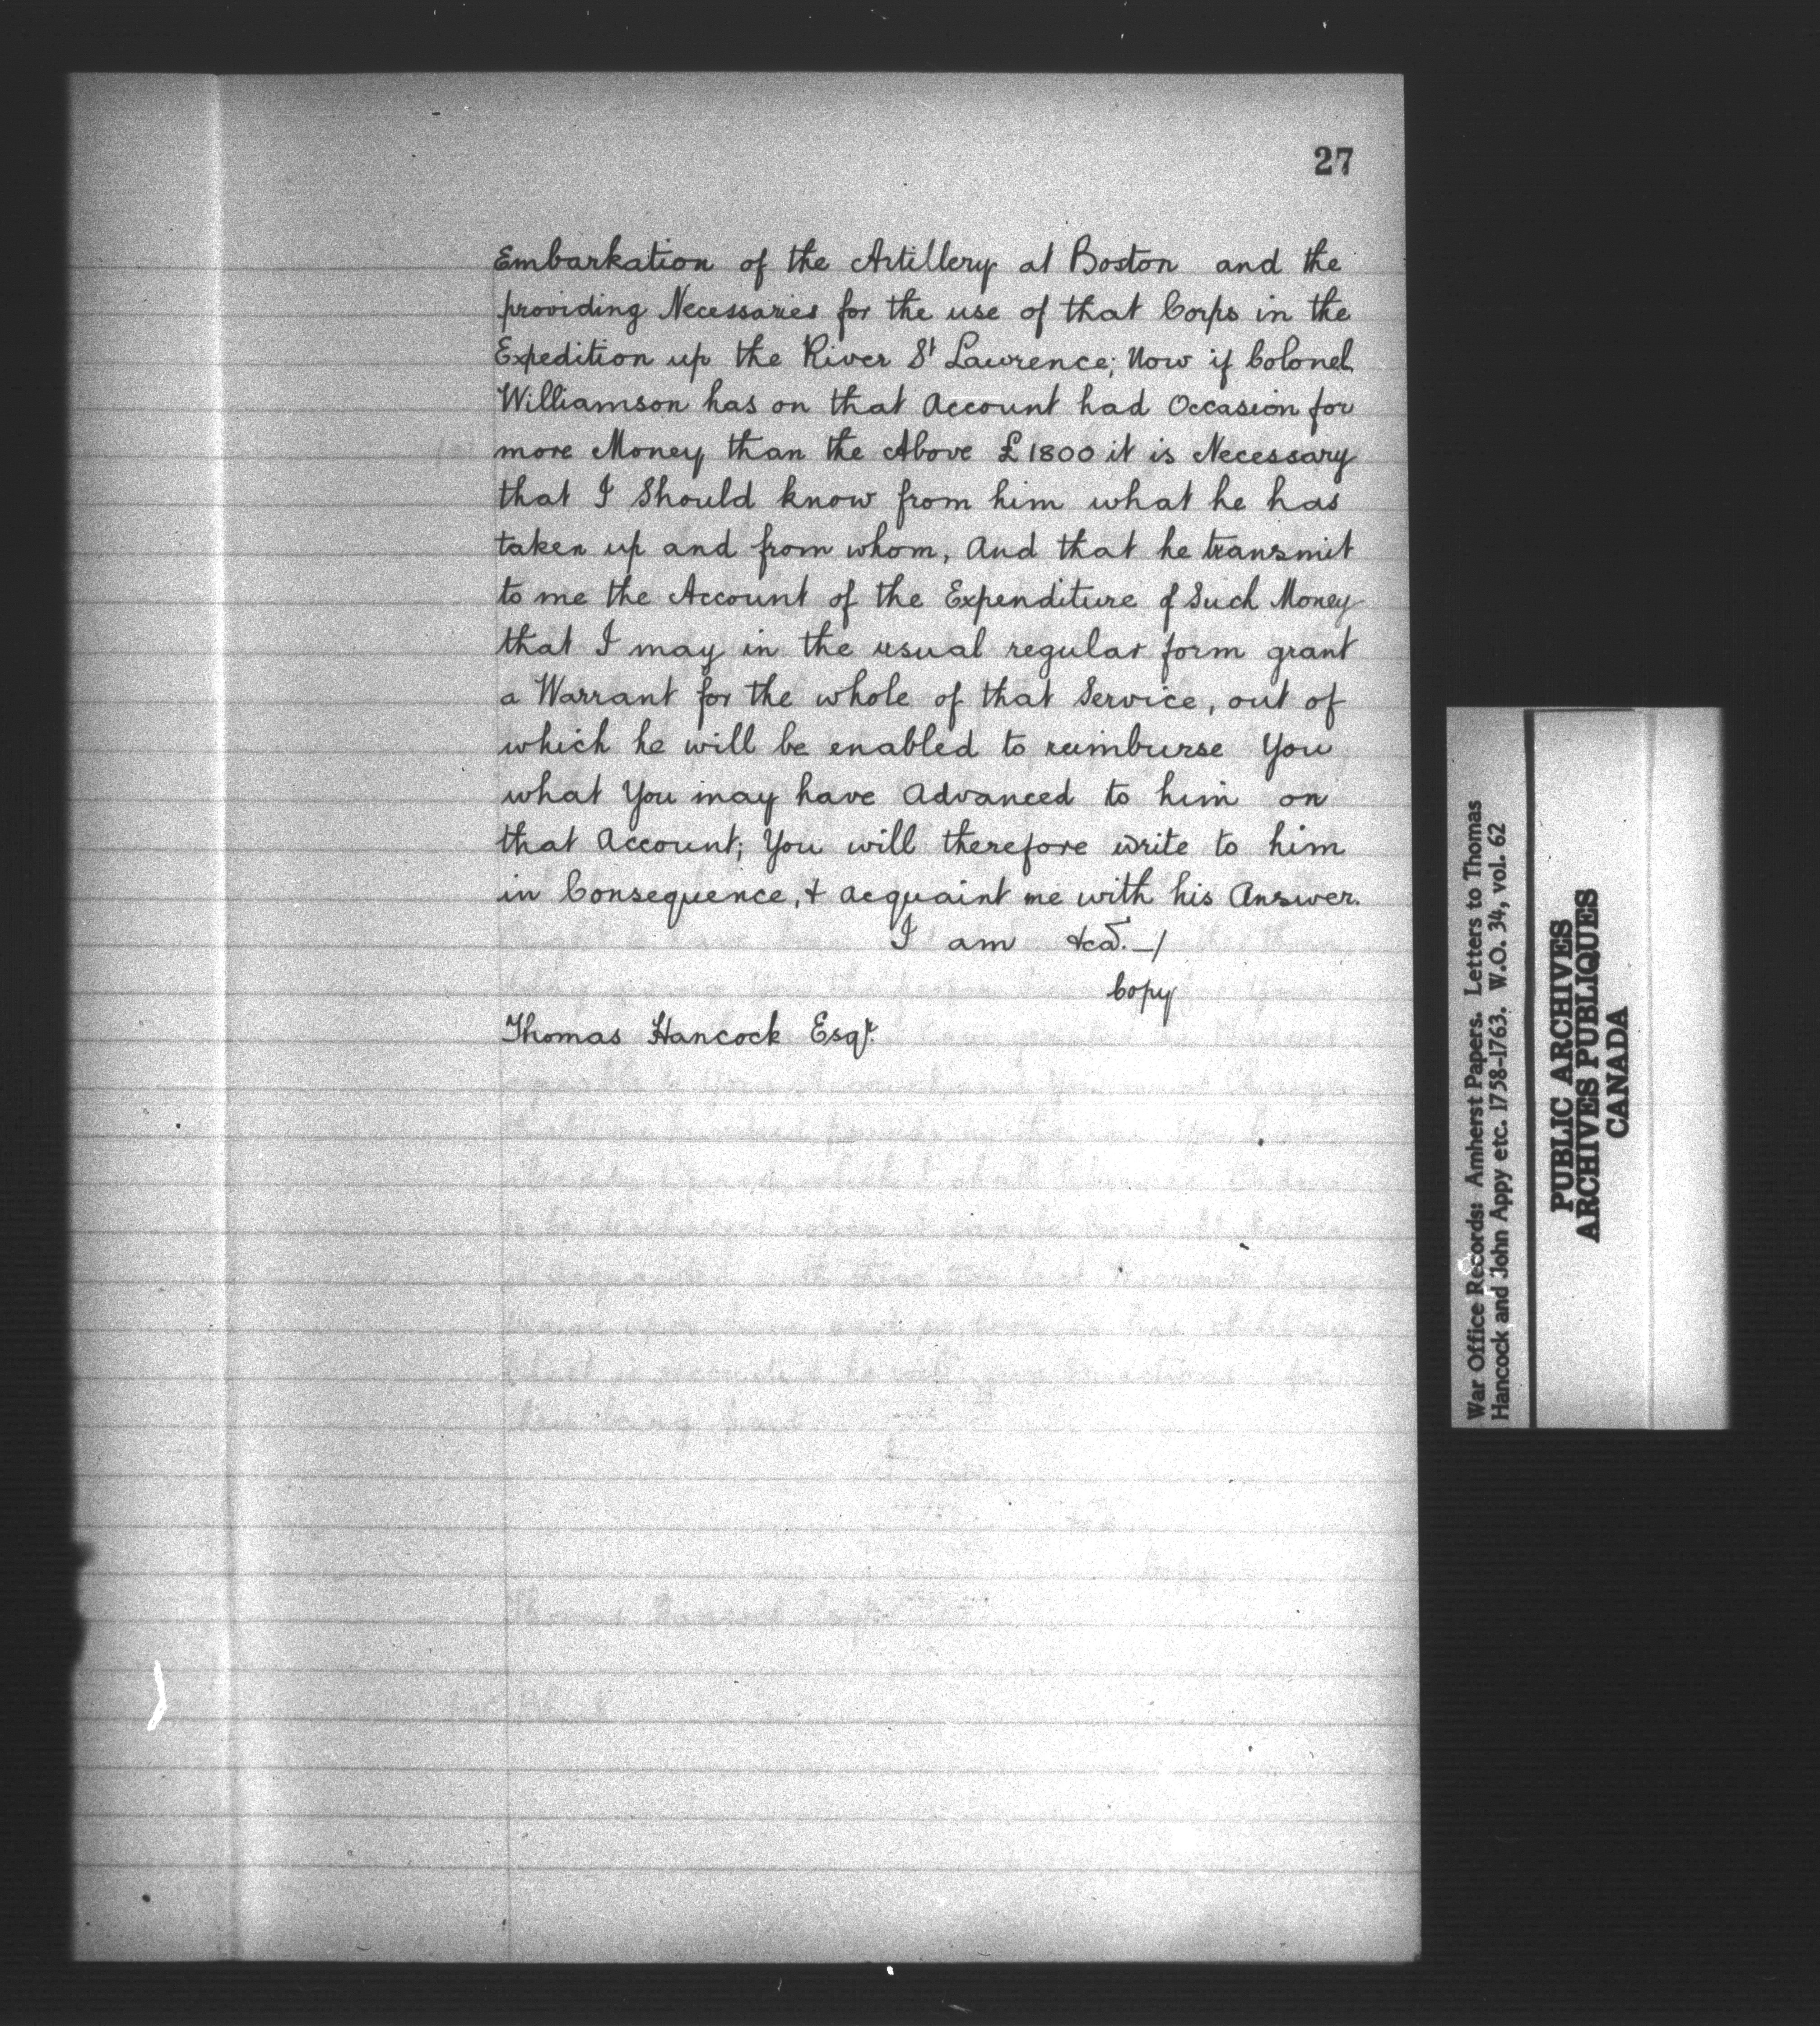 27
Embarkation of the Artillery at Boston and the
providing Necessaries for the use of that Corps in the
Expedition up the River St Lawrence; Now if Colonel
Williamson has on that Account had Occasion for
more Money than the Above £1800 it is Necessary
that I Should know from him what he has
taken up and from whom, And that he transmit
to me the Account of the Expenditure of Such Money
that I may in the usual regular form grant
a Warrant for the whole of that Service, out of
which he will be enabled to reimburse You
what You may have Advanced to him on
that Account; You will therefore write to him
in Consequence, & acquaint me with his Answer.
I am &ca. —/
Copy
Thomas Hancock Esqr.
War Office Records: Amherst Papers. Letters to Thomas
Hancock and John Appy etc. 1758-1763. W.O. 34, vol. 62
PUBLIC ARCHIVES
ARCHIVES PUBLIQUES
CANADA